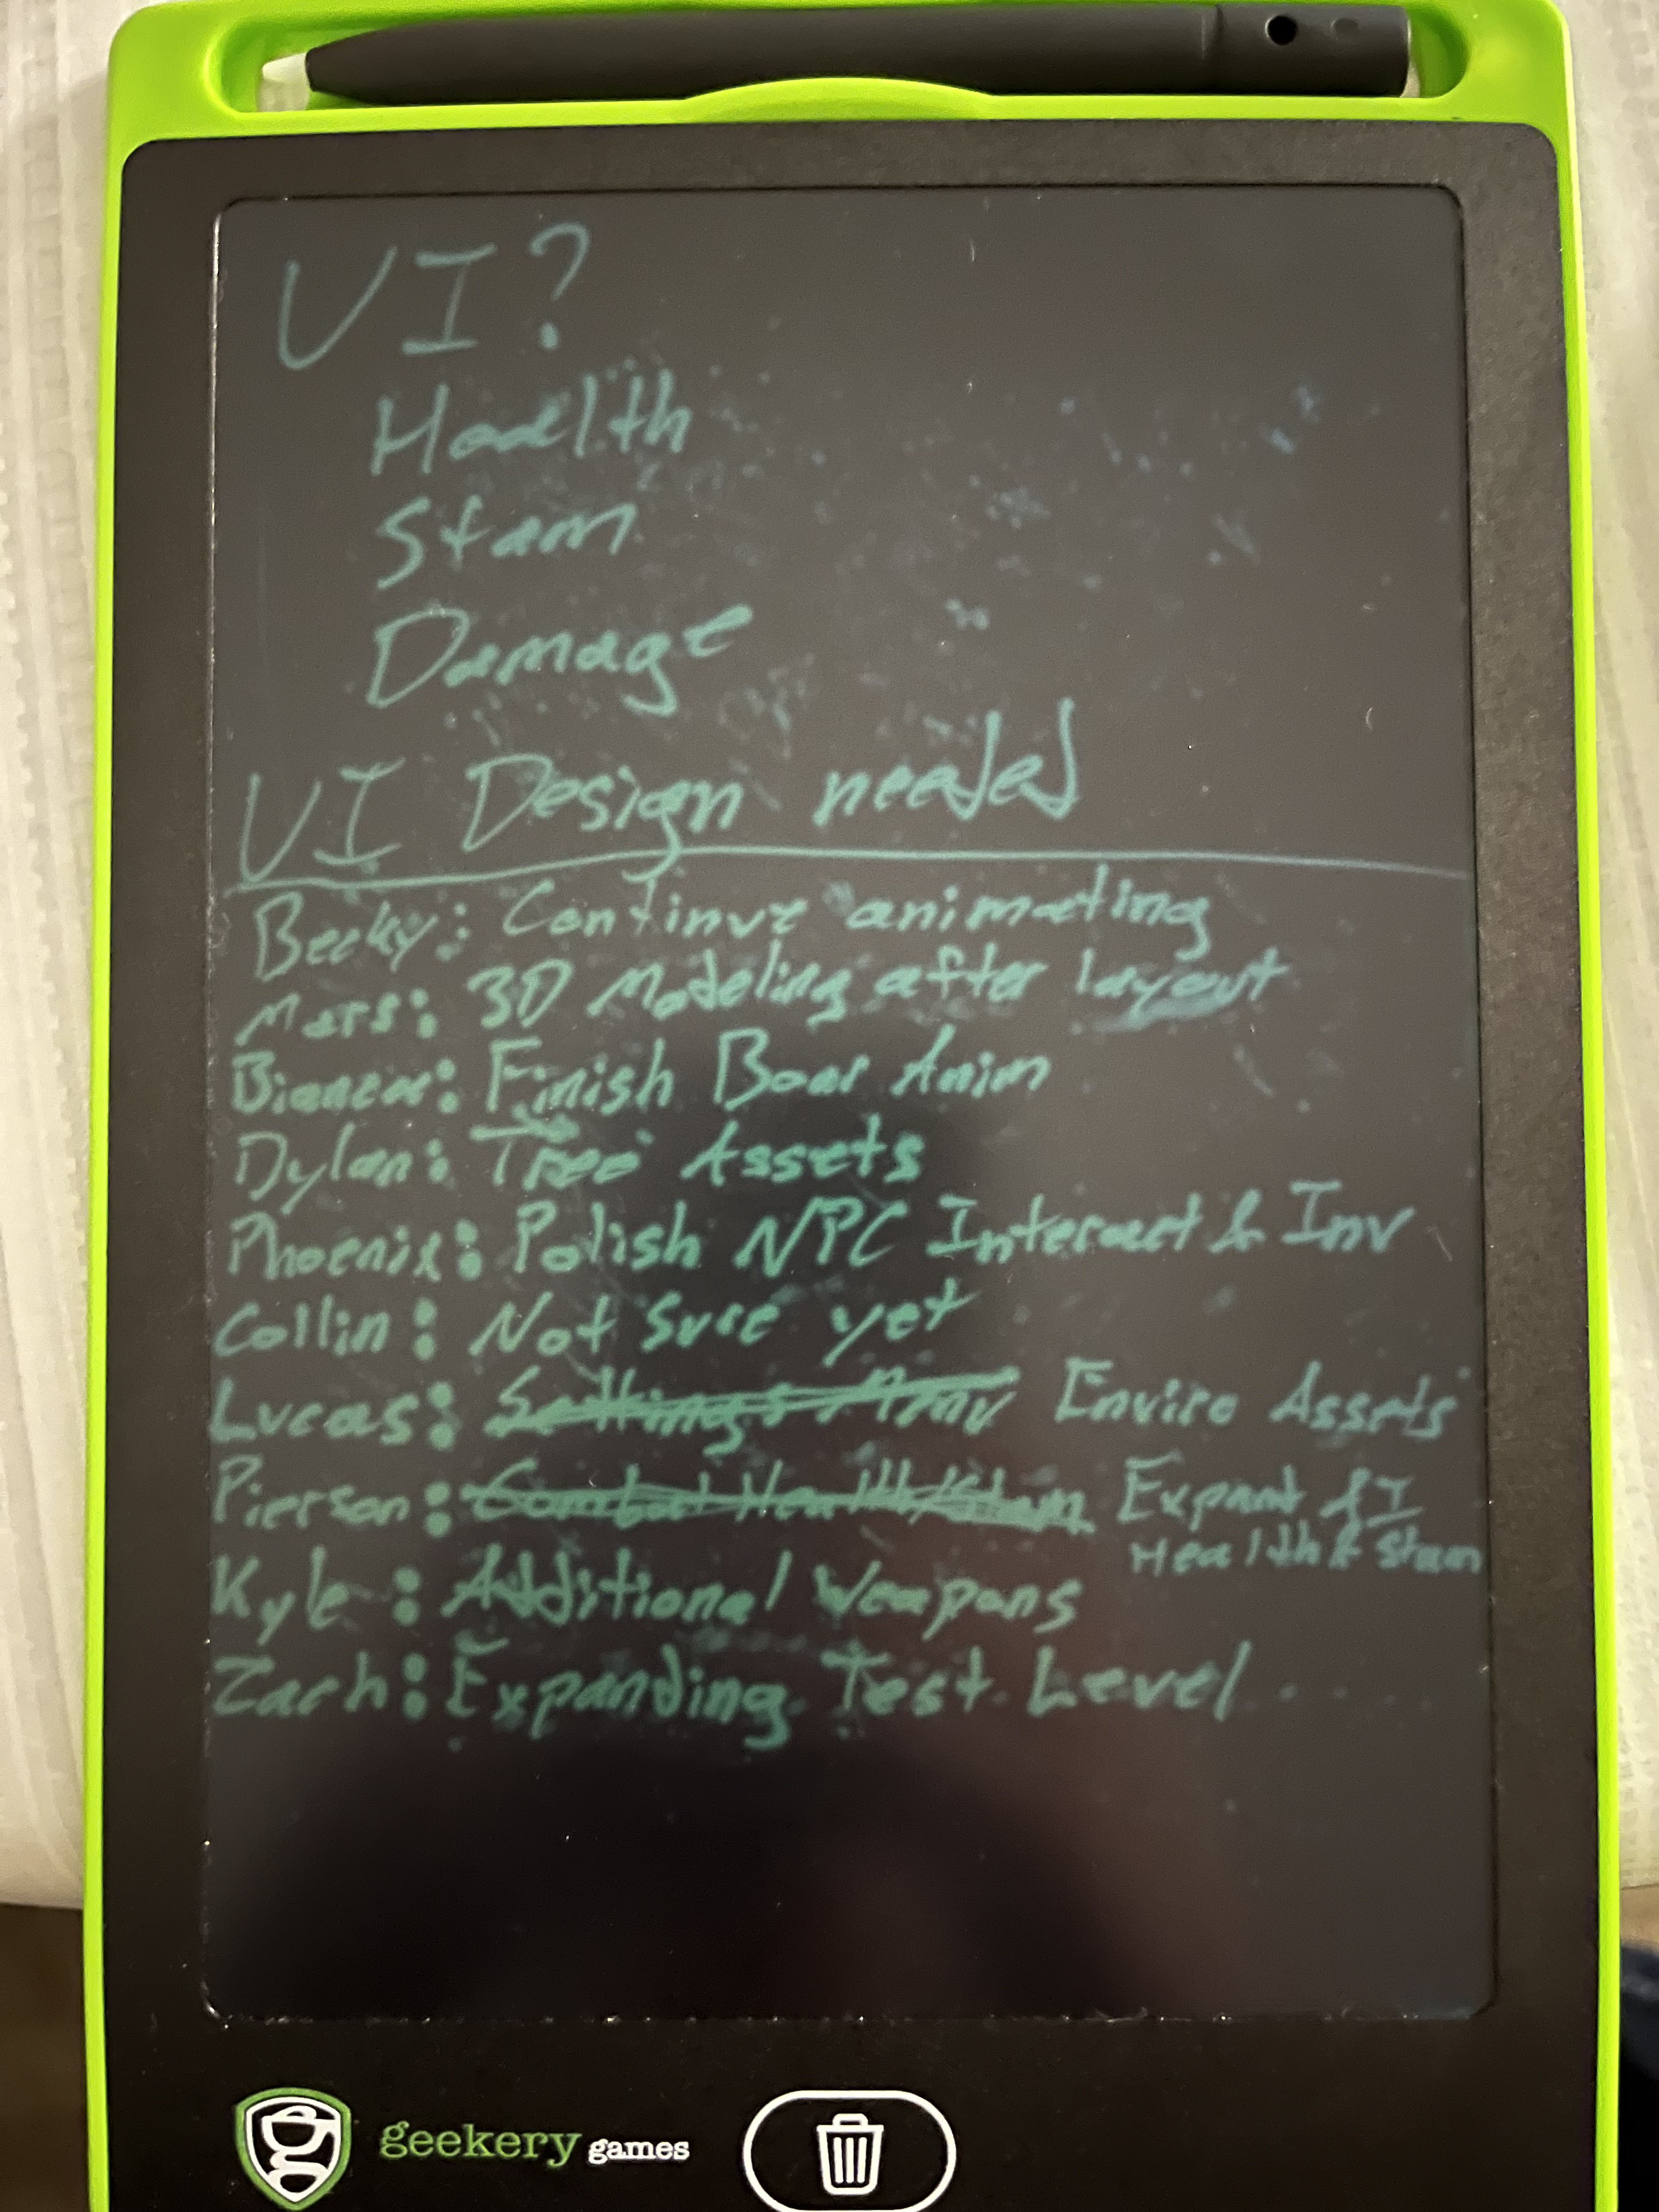 UI?
Health
Stam
Damage
UI Design needed
Becky: Continue animating
Mars: 3D Modeling after layout
Bianca: Finish Boar Anim
Dylan: Tree Assets
Phoenix: Polish NPC Interact & Inv
Collin: Not Sure yet
Lucas: Settings Enviro Assets
Pierson: Combat Health/Stam Expand
Health & Stam
Kyle: Additional Weapons
Zach: Expanding Test Level
geekery games